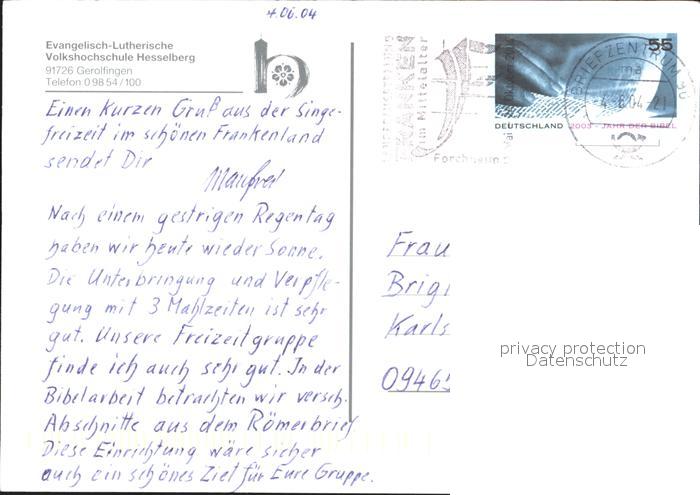 4.06.04
Evangelisch-Lutherische
Volkshochschule Hesselberg
91726 Gerolfingen
Telefon 0 98 54 / 100
Einen kurzen Gruß aus der Singe-
freizeit im schönen Frankenland
sendet Dir
Manfred
Nach einem gestrigen Regentag
haben wir heute wieder Sonne.
Die Unterbringung und Verpfle-
gung mit 3 Mahlzeiten ist sehr
gut. Unsere Freizeitgruppe
finde ich auch sehr gut. In der
Bibelarbeit betrachten wir versch.
Abschnitte aus dem Römerbrief
Diese Einrichtung wäre sicher
auch ein schönes Ziel für Eure Gruppe.
FRANKEN
im Mittelalter
Forchheim
55
DEUTSCHLAND 2003 - JAHR DER BIBEL
BRIEFZENTRUM 90
-4.6.04-21
Frau
Brigi
Karls
09465
privacy protection
Datenschutz